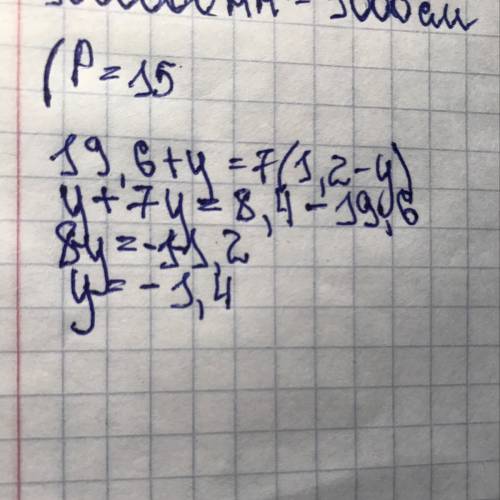 (P = 15
19,6 + y = 7(1,2 - y)
y + 7y = 8,4 - 19,6
8y = -11,2
y = -1,4